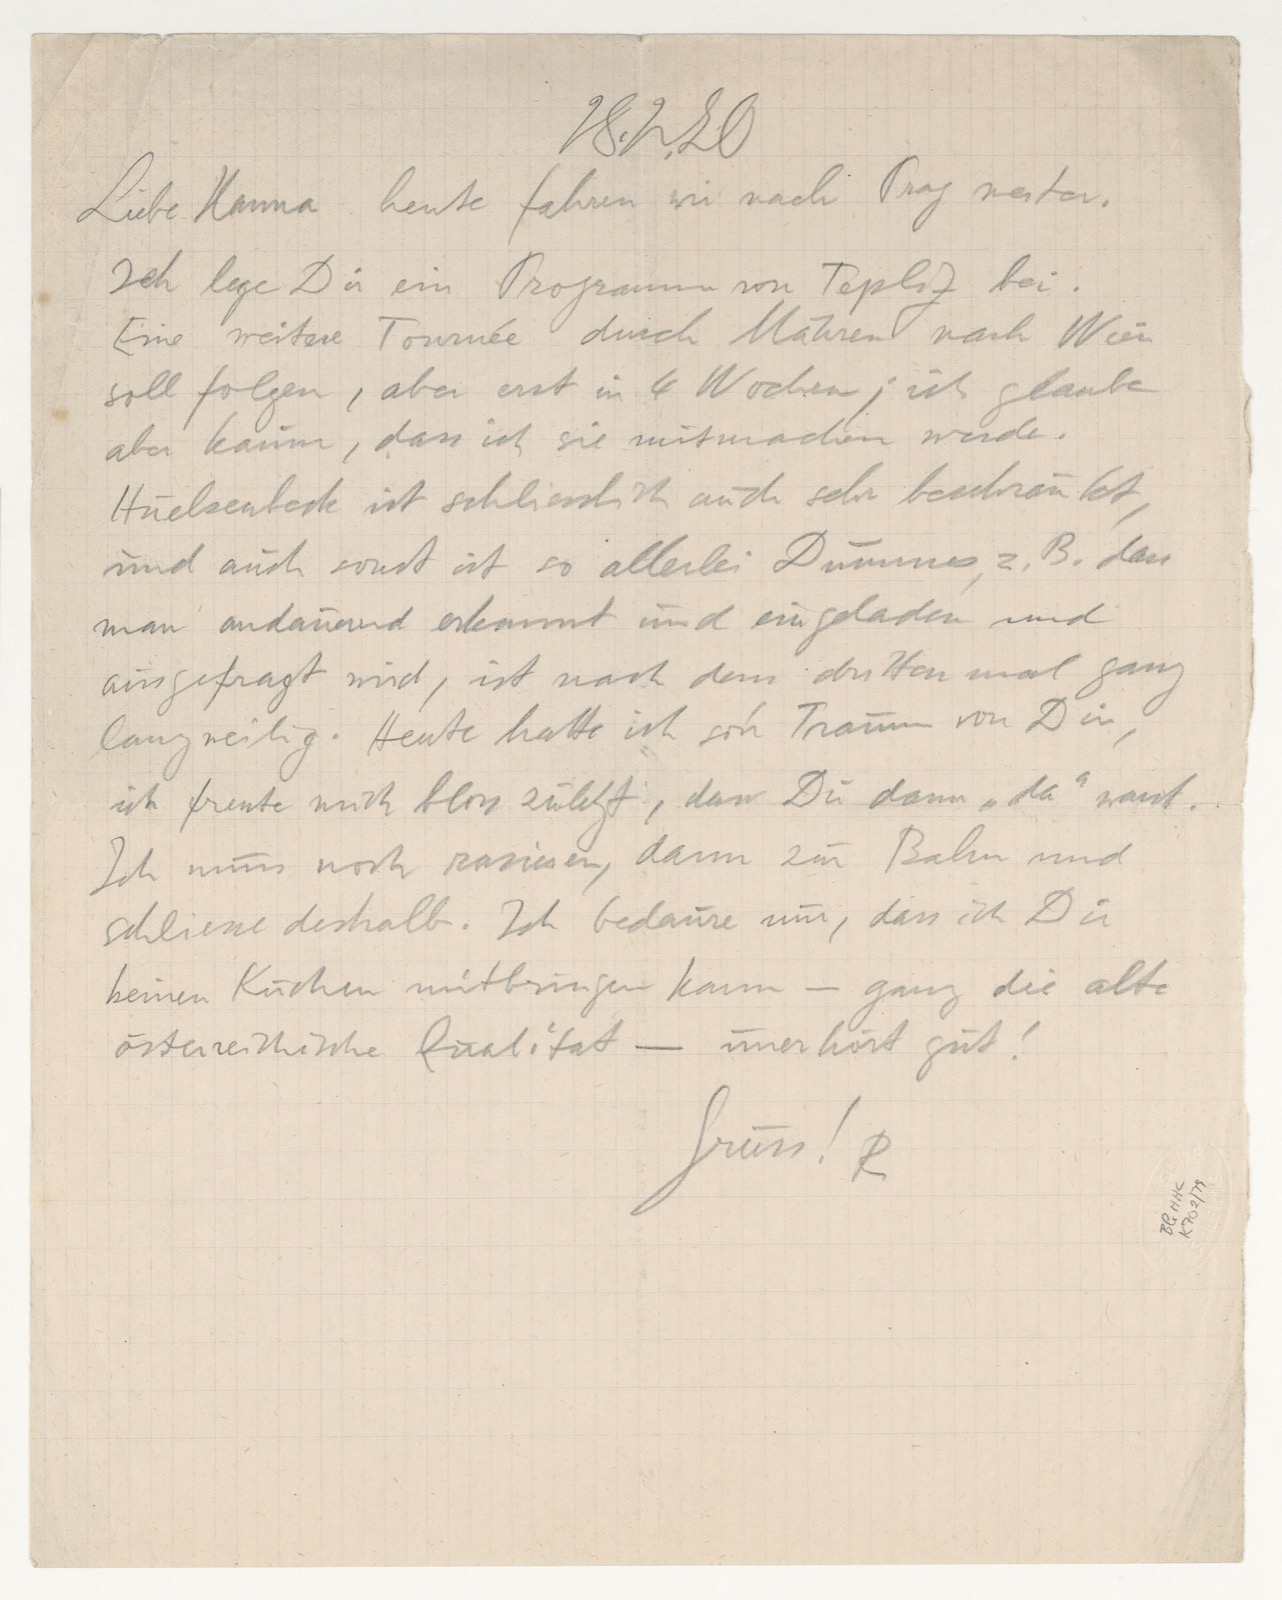 28.2.20
Liebe Hanna heute fahren wir nach Prag weiter.
Ich lege Dir ein Programm von Teplitz bei.
Eine weitere Tournée durch Mähren nach Wien
soll folgen, aber erst in 4 Wochen; ich glaube
aber kaum, dass ich sie mitmachen werde.
Huelsenbeck ist schliesslich auch sehr beschränkt,
und auch sonst ist so allerlei Dummes, z. B. dass
man andauernd erkannt und eingeladen und
ausgefragt wird, ist nach dem dritten mal ganz
langweilig. Heute hatte ich so'n Traum von Dir,
ich freute mich bloss zuletzt, dass Du dann „da“ warst.
Ich muss noch rasieren, dann zur Bahn und
schliesse deshalb. Ich bedaure nur, dass ich Dir
keinen Kuchen mitbringen kann — ganz die alte
österreichische Qualität — unerhört gut!
Gruss! R
BG HHC
K 702/79